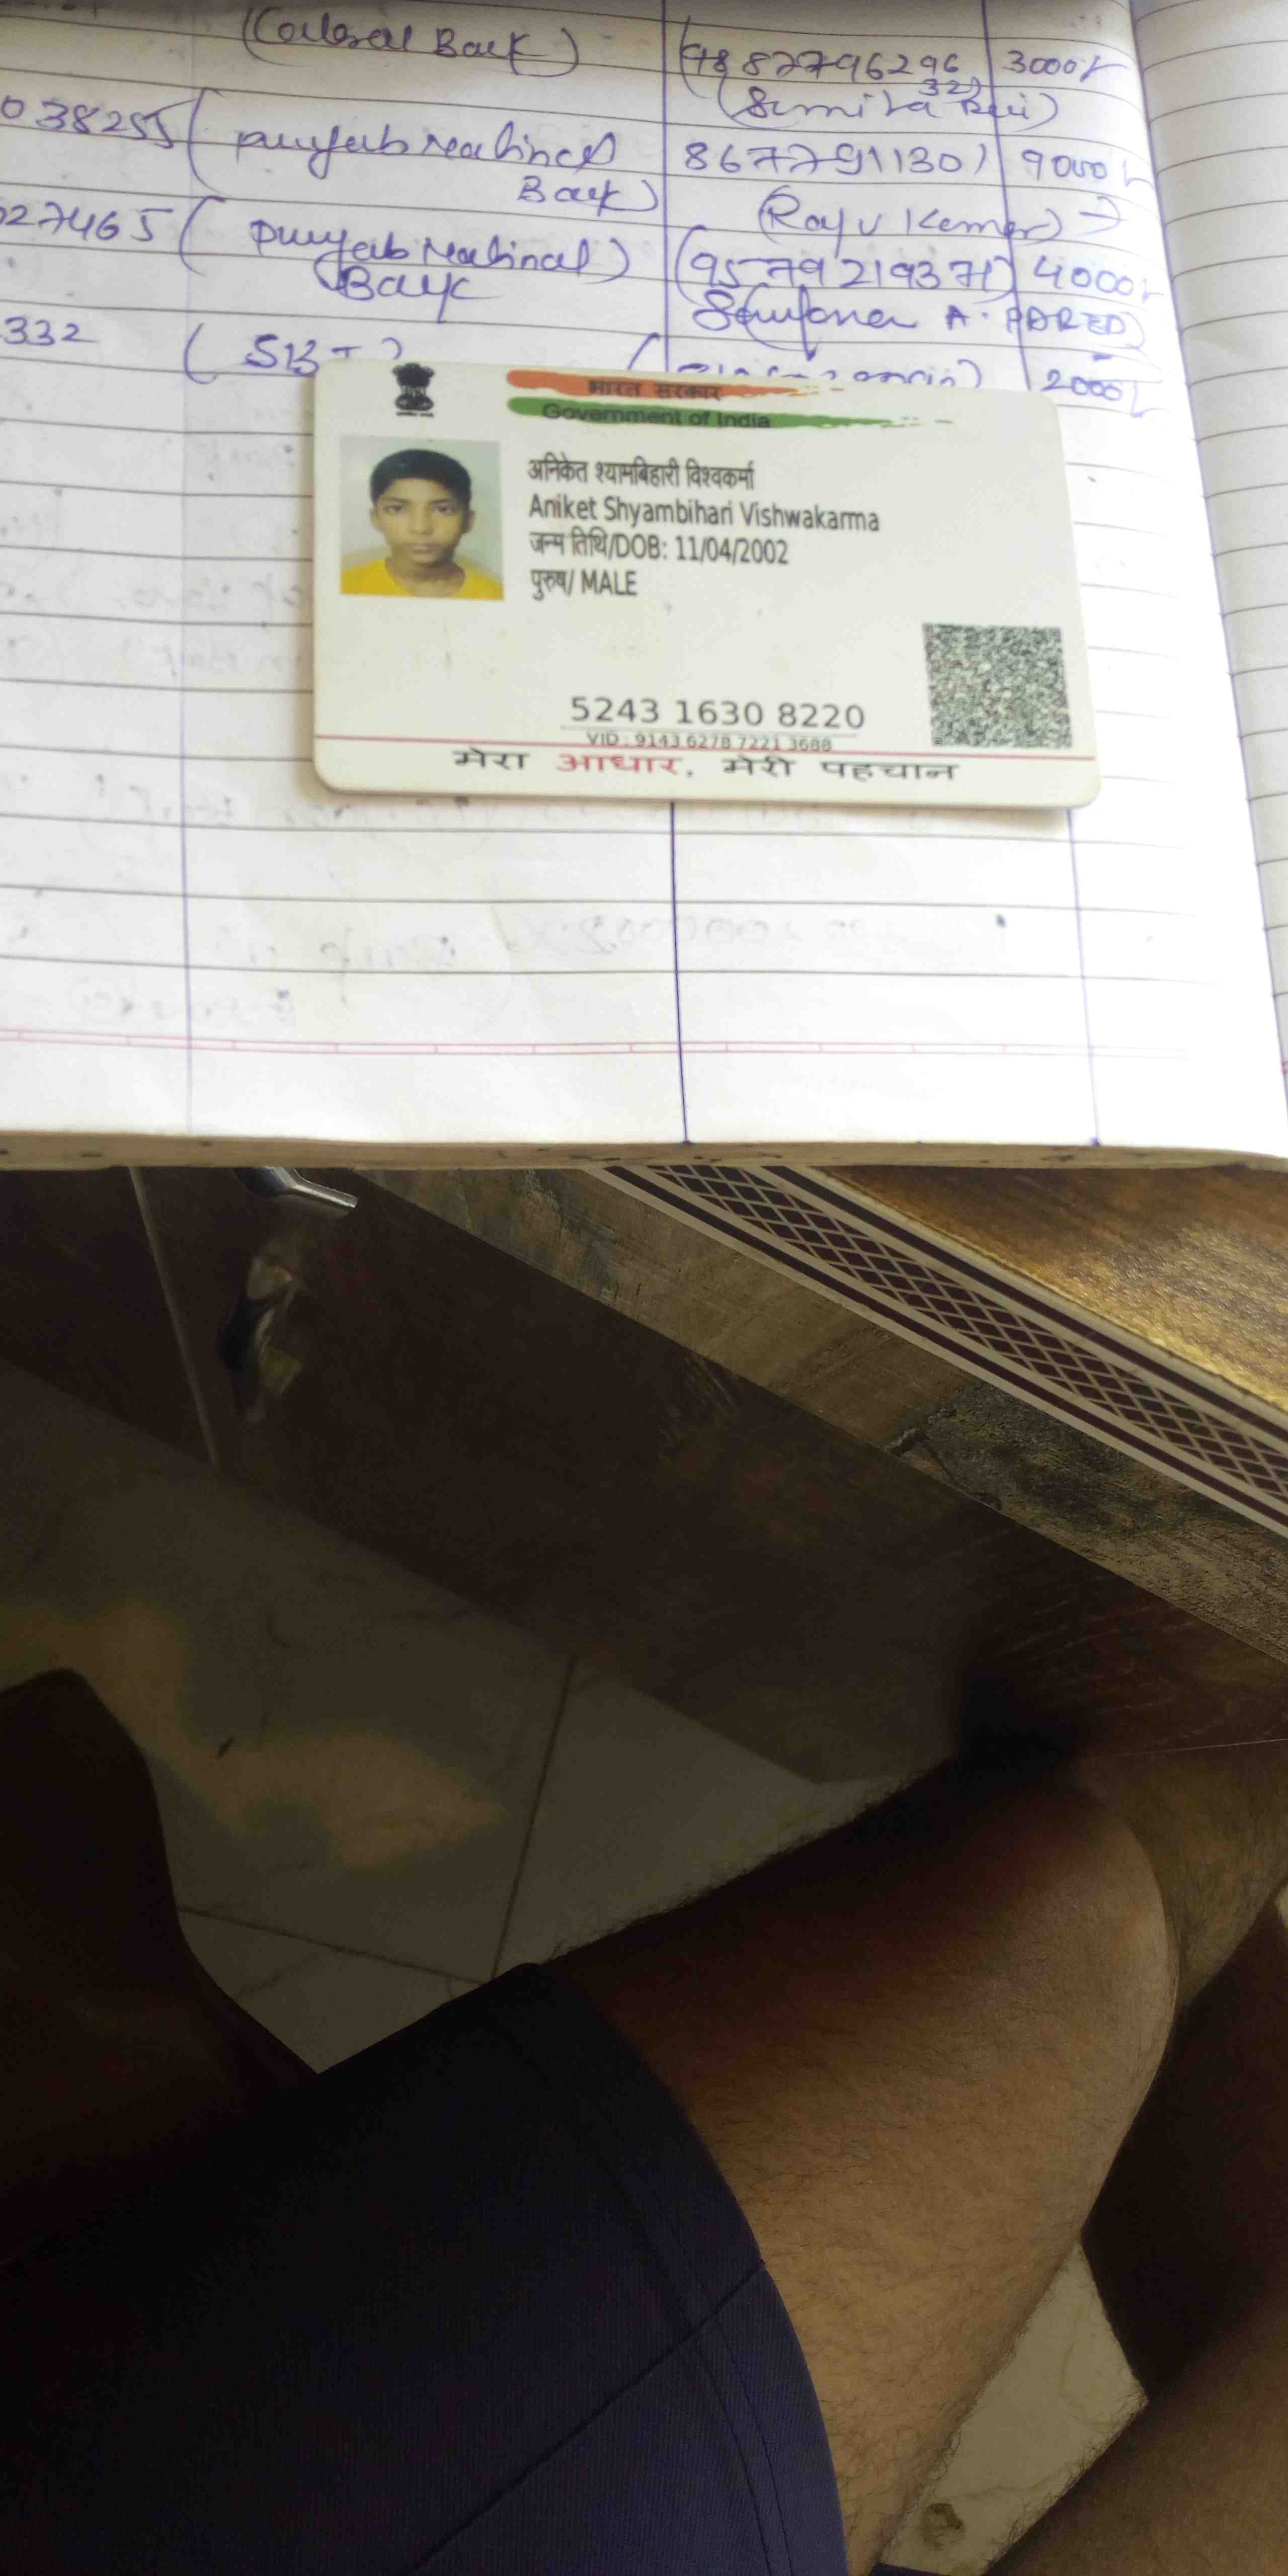 Bank)
9887796296 3000/-
32)
038255 (punjab national 8677791130) 9000/-
Bank)
(Rajv Kemar) →
027465 (punjab national) (9579219371) 4000/-
Bank
A.
332 (SBI) 2000/-
भारत सरकार
Government of India
अनिकेत श्यामबिहारी विश्वकर्मा
Aniket Shyambihari Vishwakarma
जन्म तिथि/DOB: 11/04/2002
पुरुष/ MALE
5243 1630 8220
VID : 9143 6278 7221 3688
मेरा आधार, मेरी पहचान